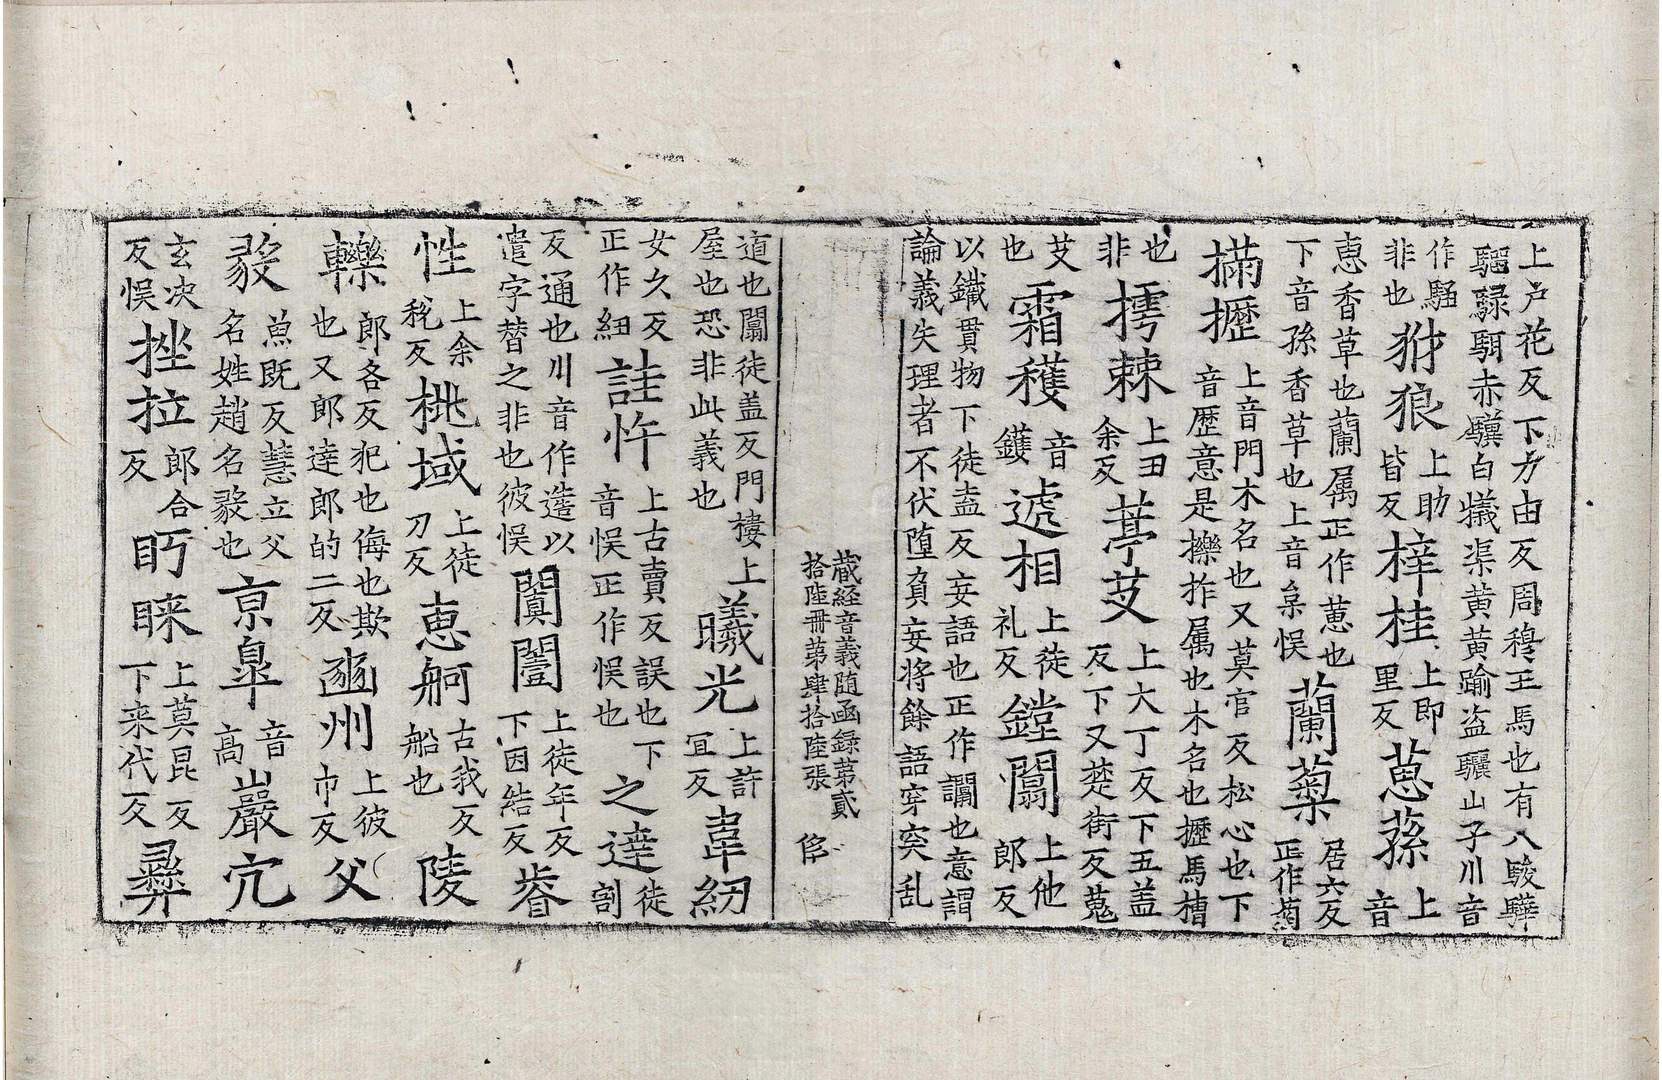 上户花反下力由反周穆王馬也有八駿驊
騮騄駬赤驥白𤡝渠黄黄踰盗驪山子川音
作騷非也犲狼上助皆反梓桂上即里反蒠蓀上音
恵香草也蘭属正作蕙也下音孫香草也上音枲悮蘭蘜居六反正作菊
㨺攊上音門木名也又莫官反松心也下音歴意是擽拃属也木名也攊馬槽
也非摴棘上丑余反葶芆上大丁反下五盖反下又茪街反蒐
芆也霜穫音鑊逓相上徒礼反鏜闒上他郎反
以鐵貫物下徒盍反妄語也正作讕也意謂
論義失理者不伏堕負妄将餘語穿突乱
蔵経音義随函録第貳
拾陸冊第肆拾陸張 𠈷
道也闒徒盖反門樓上屋也恐非此義也曦光上許冝反韋紉
女久反正作紐詿忤上古賣反誤也下音悮正作悮也之達徒割
反通也川音作造以遣字替之非也彼悮闐闔上徒年反下因結反㫺
性上余稅反桃域上徒刀反恵舸古我反船也陵
轢郎各反犯也侮也欺也又郎達郎的二反豳州上彼巾反父
毅魚既反慧立父名姓趙名毅也京臯音高巖宂
玄次反悮挫拉郎合反眄睞上莫昆反下来代反彛